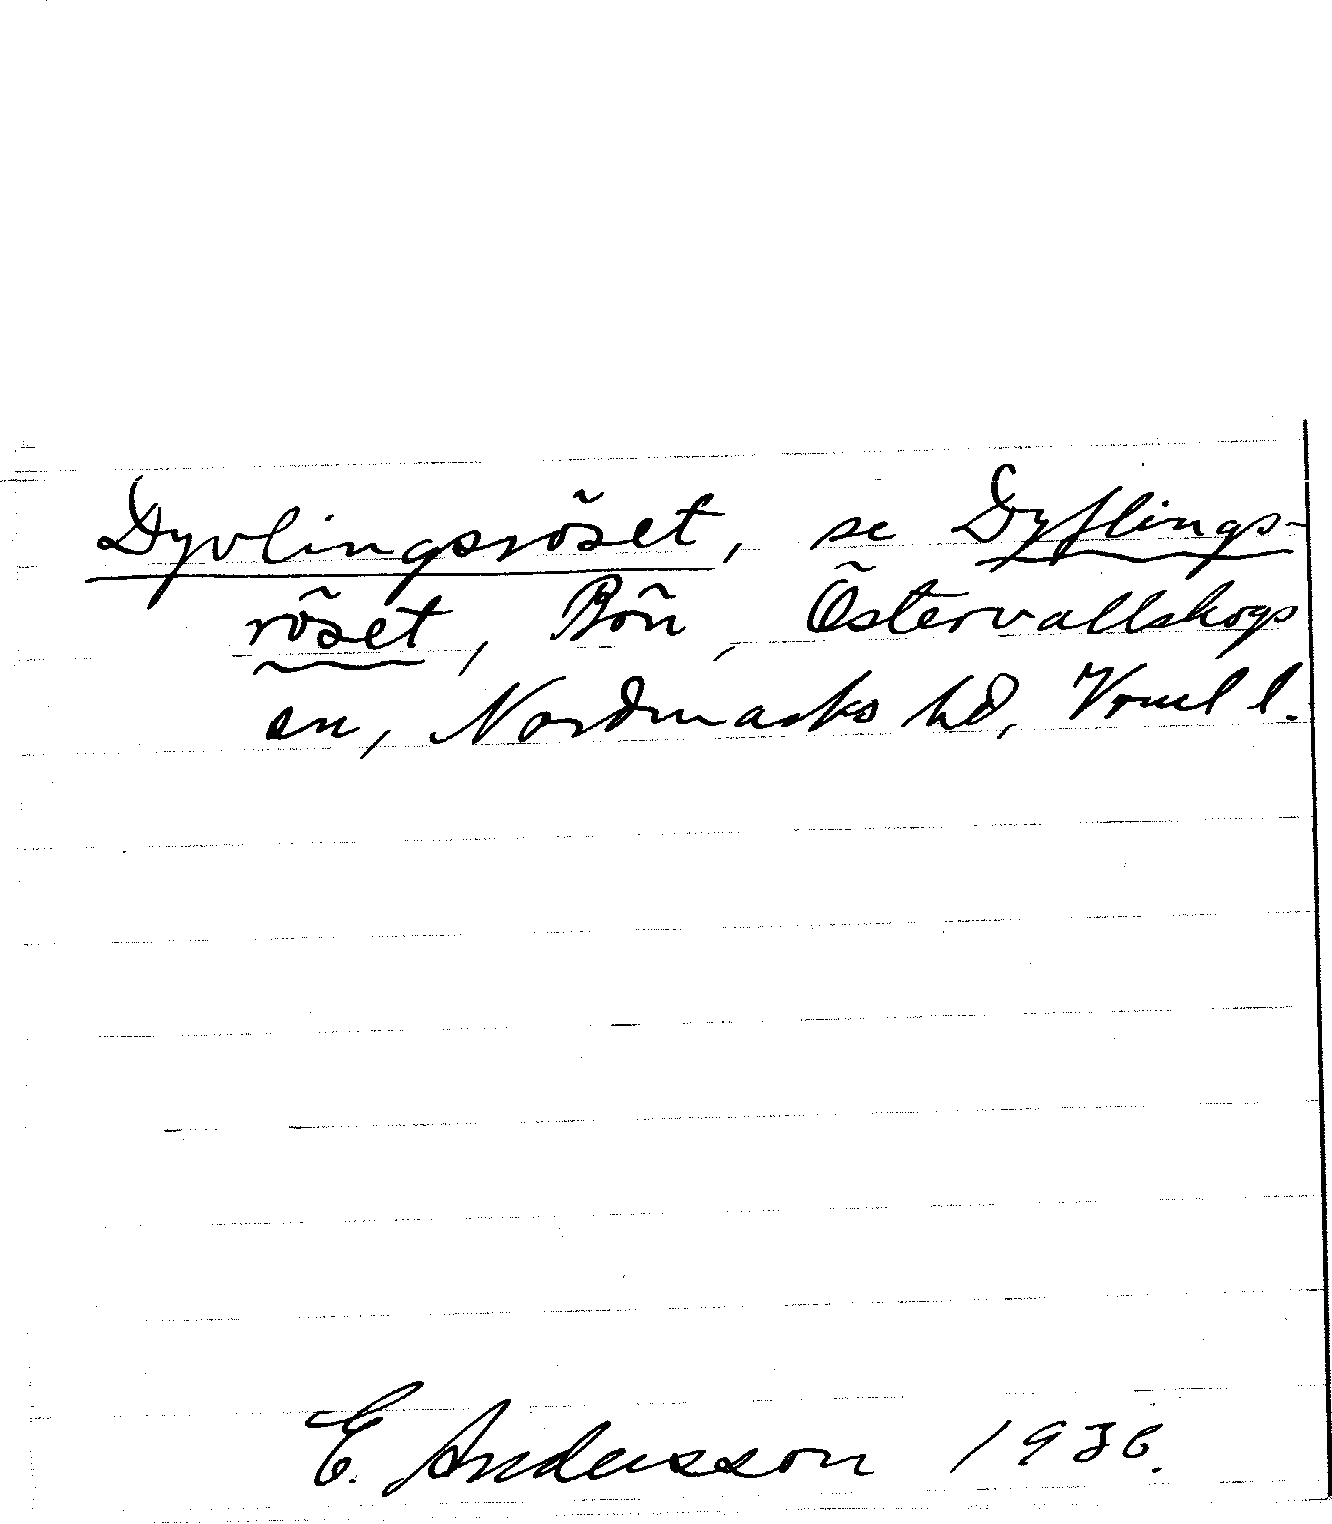 Dyvlingsröset, se Dyflings-
röset, Bön, Östervallskogs
sn, Nordmarks hd, Vrml l.
E. Andersson 1936.